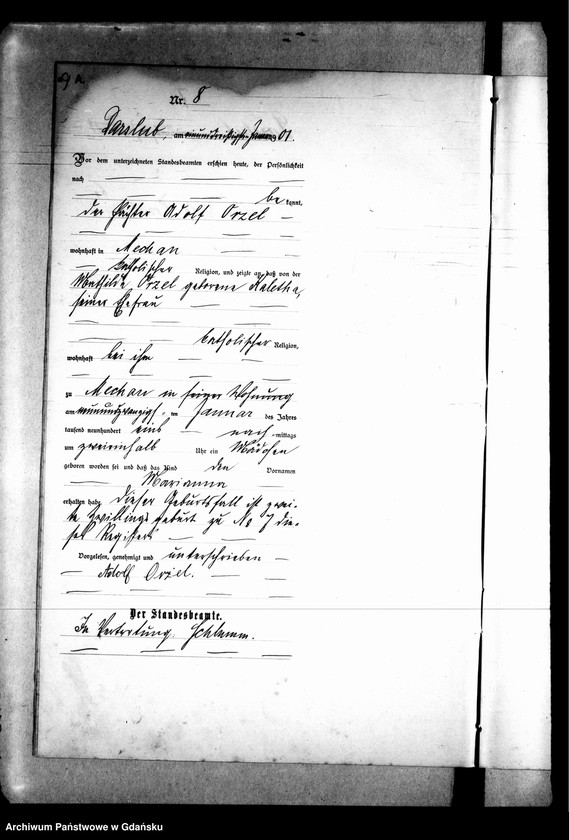 9 A.
Nr. 8
Darslub, am einunddreißigsten Januar 01.
Vor dem unterzeichneten Standesbeamten erschien heute, der Persönlichkeit
nach
be kannt,
der Pächter Adolf Orzel
wohnhaft in Mechan
katholischer Religion, und zeigte an, daß von der
Mathilde Orzel geborene Kaletha,
seiner Ehefrau
katholischer Religion,
wohnhaft bei ihm
zu Mechan in seiner Wohnung
am neunundzwanzigsten Januar des Jahres
tausend neunhundert eins nach mittags
um zweieinhalb Uhr ein Mädchen
geboren worden sei und daß das Kind den Vornamen
Marianna
erhalten habe. Dieser Geburtsfall ist zwei-
te Zwillingsgeburt zu No 7 die-
ses Registers
Vorgelesen, genehmigt und unterschrieben
Adolf Orzel.
Der Standesbeamte.
In Vertretung. Schlumm.
Archiwum Państwowe w Gdańsku